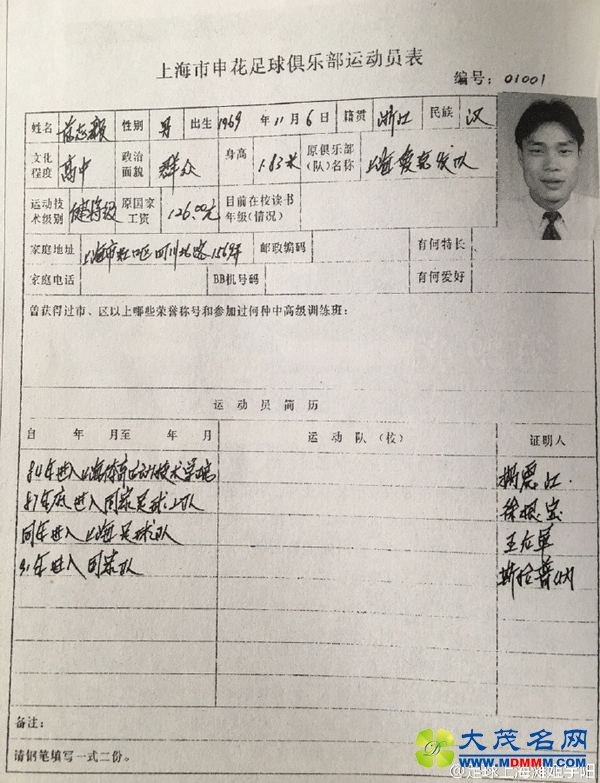 上海市申花足球俱乐部运动员表
编号：01001
姓名 范志毅 性别 男 出生 1969 年 11 月 6 日 籍贯 浙江 民族 汉
文化程度 高中 政治面貌 群众 身高 1.83米 原俱乐部(队)名称 上海
运动技术级别 健将级 原国家工资 126.00元 目前在校读书年级(情况)
家庭地址 上海市虹口区四川北路1569弄 邮政编码 有何特长
家庭电话 BB机号码 有何爱好
曾获得过市、区以上哪些荣誉称号和参加过何种中高级训练班：
运动员简历
自 年 月至 年 月 运动队(校) 证明人
84年进入上海体育运动技术学院
87年底进入国家足球二队 徐根宝
同年进入上海足球队 王后军
91年进入国家队
备注：
请钢笔填写一式二份。
大茂名网
WWW.MDMMM.COM
@足球上海滩姬宇阳